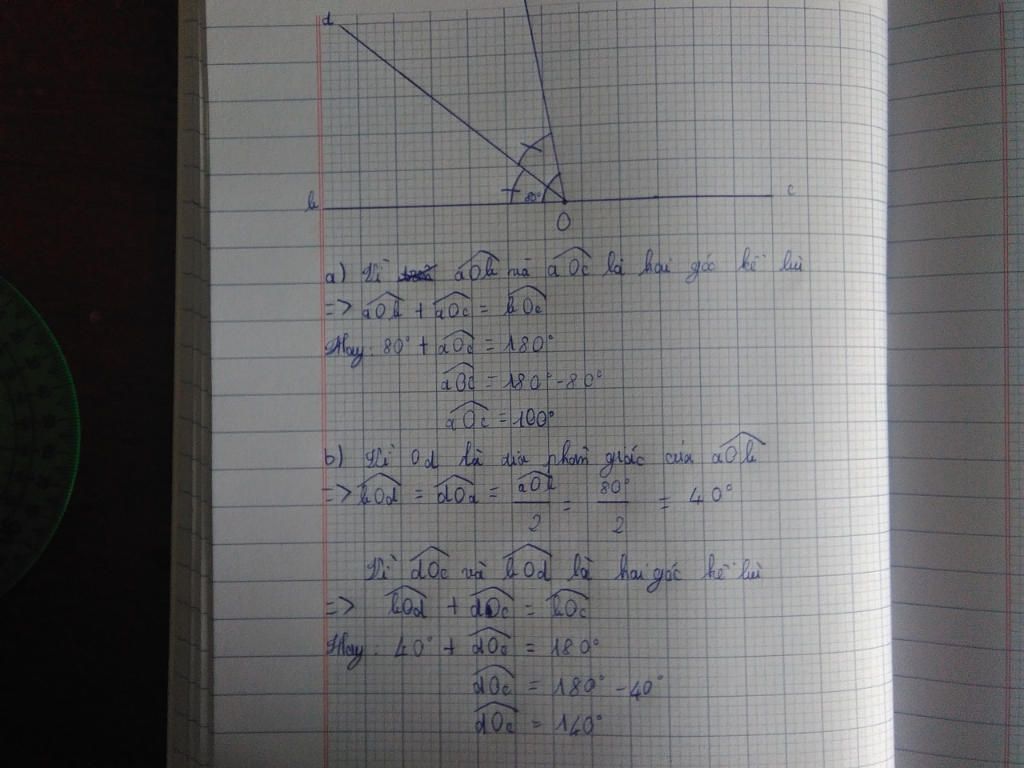 d
b
80°
c
O
a) Vì aOb và aOc là hai góc kề bù
=> aOb + aOc = bOc
Hay: 80° + aOc = 180°
aOc = 180° - 80°
aOc = 100°
b) Vì Od là tia phân giác của aOb
=> bOd = dOa = aOb/2 = 80°/2 = 40°
Vì dOc và bOd là hai góc kề bù
=> bOd + dOc = bOc
Hay: 40° + dOc = 180°
dOc = 180° - 40°
dOc = 140°